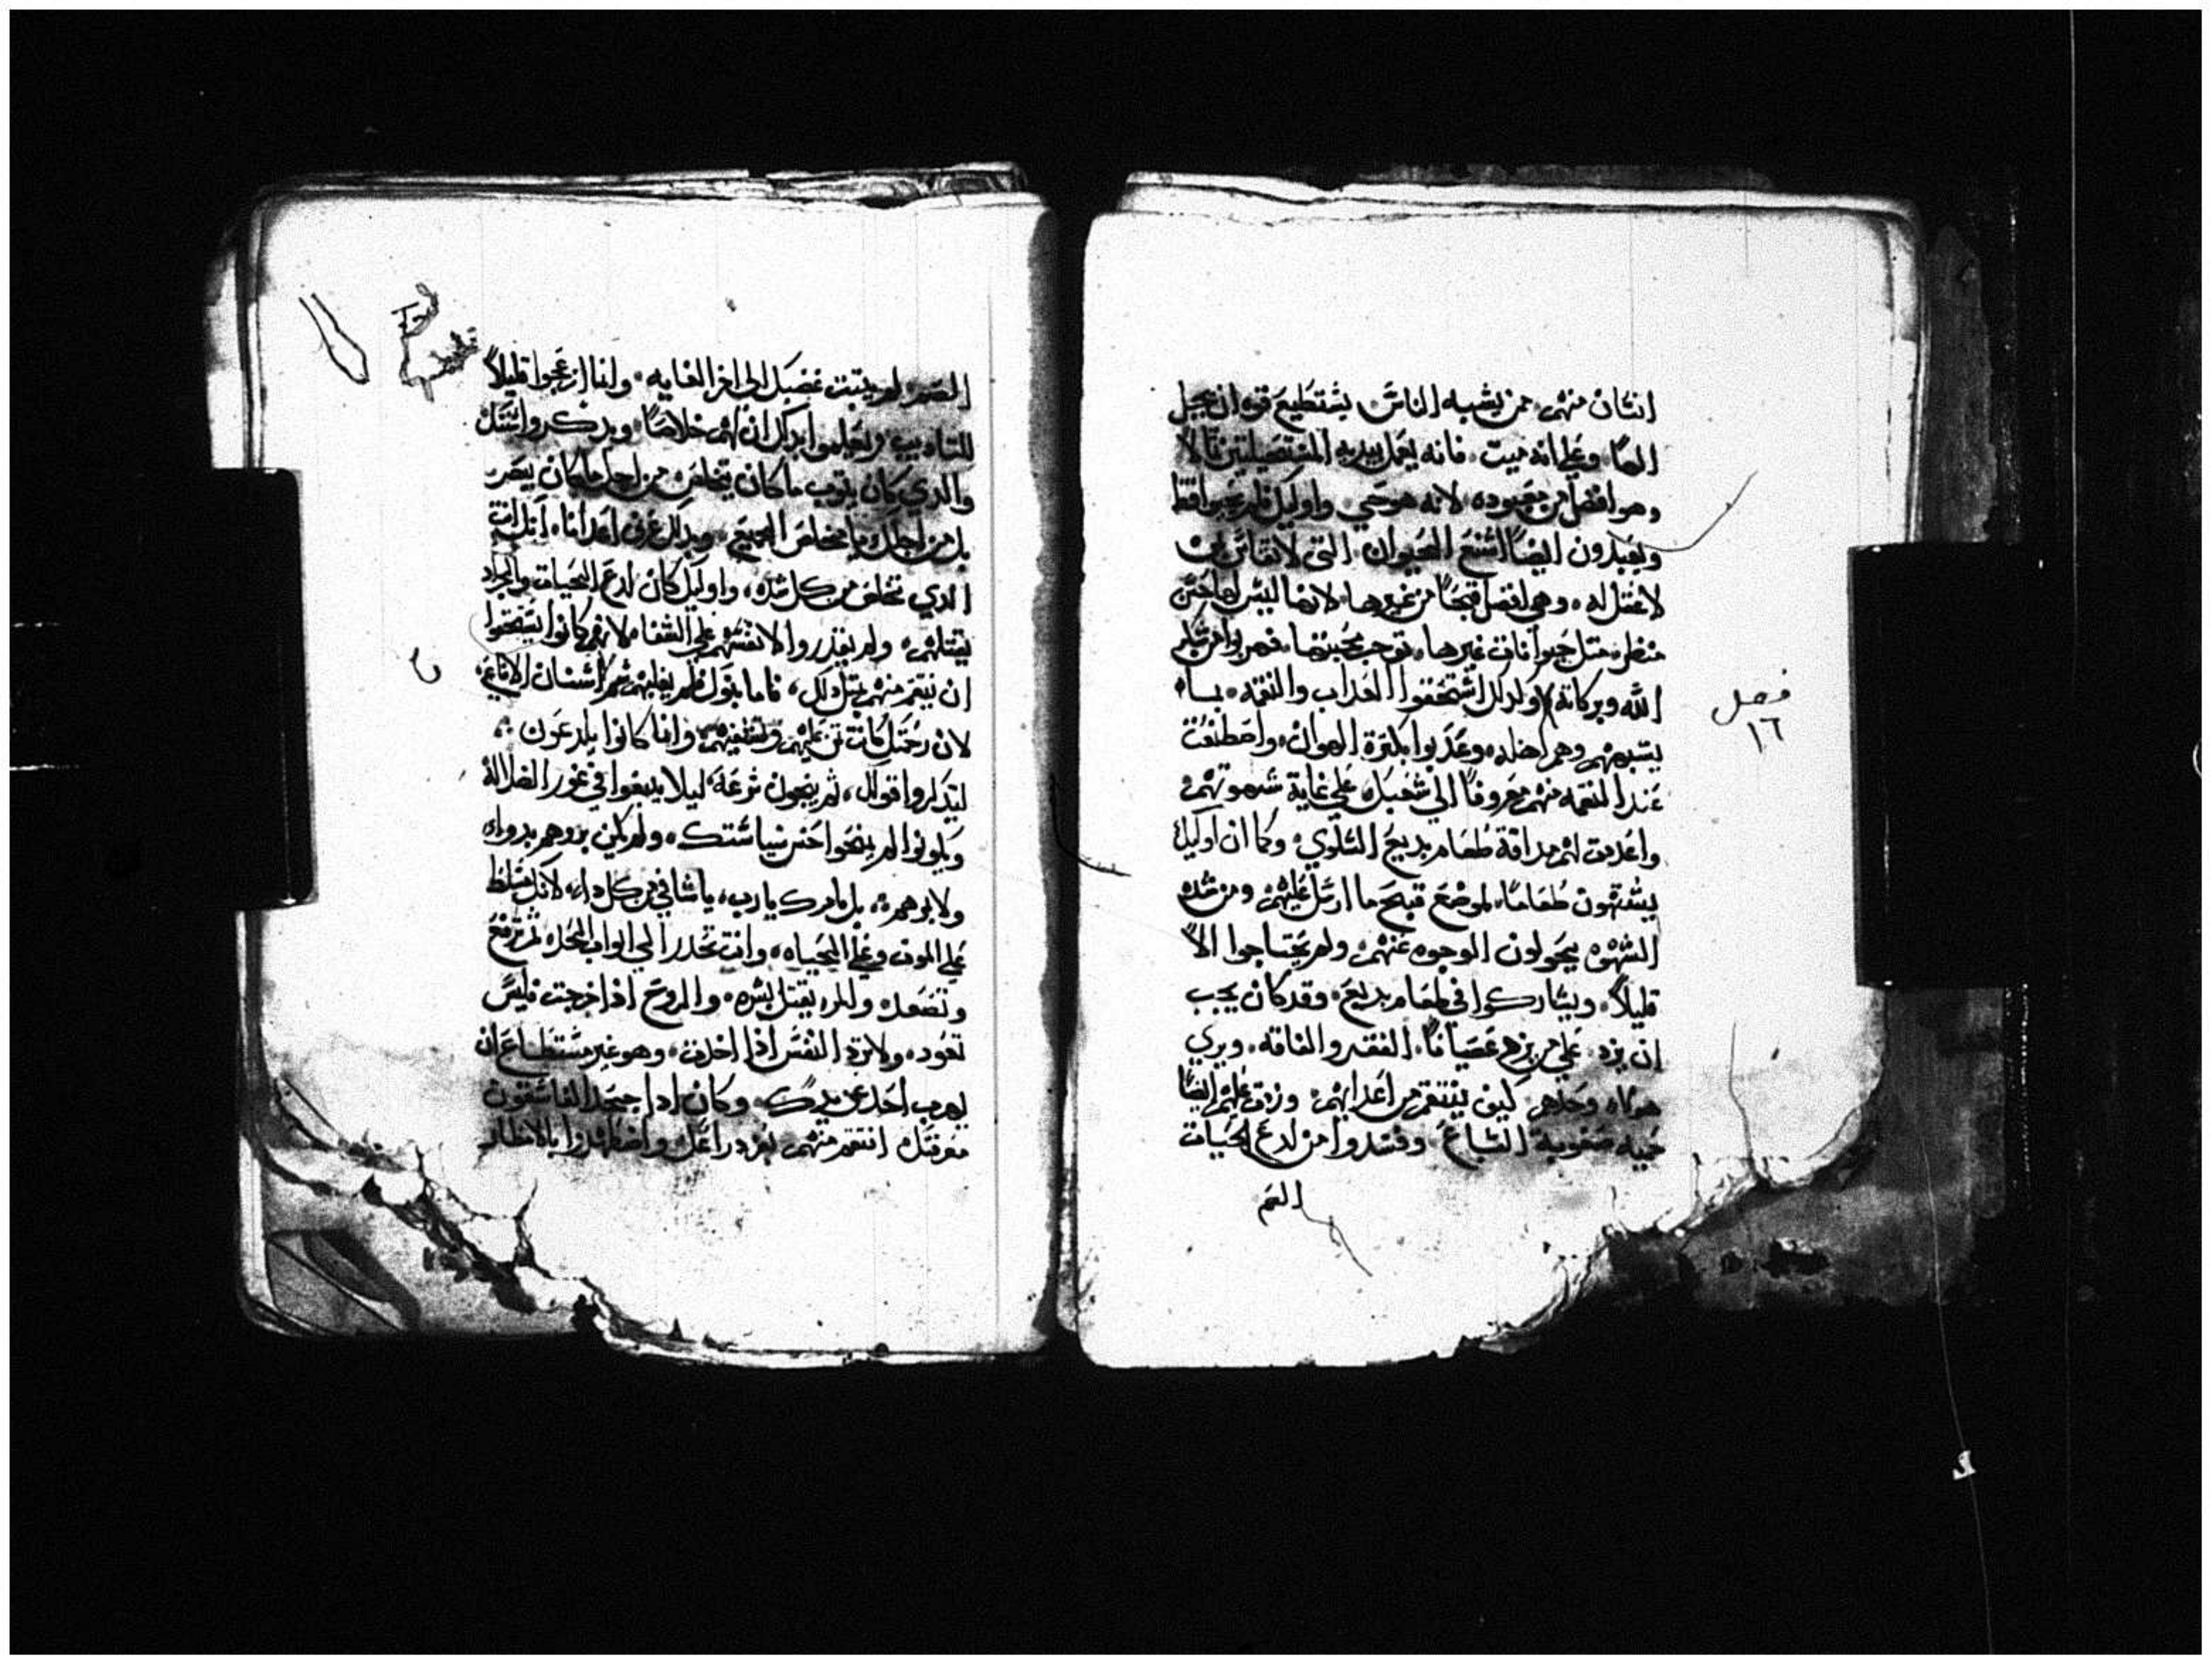 انسان منهم ممن يشبه الناس يستطيع قوه ان يجبل
الها وعلى انه ميت فانه يعمل بيديه
وهو افضل من معبوده لانه هو حي واوليك فلم يحيوا قط
ويعبدون ايضا اشنع الحيوان التي لا تقاس بمن
لا عقل له وهي افضل قبحا من غيرها لانها ليس لها حسن
منظر مثل حيوانات غيرها توجب محبتها
الله وبركاته ولدلك استحقوا العداب والنقمه بما
يشبههم وهم اهله وعدبوا بكثرة الهوان واصطنعت
عند النقمه منهم معروفا الي شعبك علي غاية شهوتهم
واعددت لهم مداقة طعام بديع السلوي وكما ان اوليك
يشتهون طعاما لموضع قبح ما ارسل عليهم ومن شده
الشهوه يحولون الوجوه عنهم ولم يحتاجوا الا
قليلا ويشاركوا في طعام بديع وقد كان يجب
ان يرد علي من عصيانا الفقر والفاقه ويري
هولاء وحدهم كيف ينتقم من اعدايهم وردت عليهم ايضا
حميه صعوبة السباع وفسدوا من لدغ الحيات
العم
فصل
١٦
لم يثبت غضبك الي اخر الغايه وانما ازعجوا قليلا
للتاديب وبدكروا
والدي كان يتوب ما كان يتخلص من اجل ما كان يبصر
بل من اجلك يا مخلص الجميع وبدلك اعدانا انك انت
الدي تخلص من كل شده واوليك كان لدغ الحيات والجراد
يقتلهم ولم يقدروا لانفسهم علي الشفاء لانهم كانوا يستحقوا
ان ينتقم منهم بمثل دلك فاما بنوك فلم يغلبهم سم اسنان الافاعي
لان رحمتك كانت تمن عليهم وتشفيهم وانما كانوا يلدعون
ليتدكروا قولك ثم ينجون سرعة ليلا يدفعوا في غور الضلاله
ويكونوا لم حسن سياستك ولم يكن بروهم بدواء
ولا بمرهم بل بامرك يا رب يا شافي من كل داء لانك تسلط
علي الموت وعلي الحياه وانت تحدر الي ابواب ثم ترفع
وتصعد والمرء يقتل بشره والروح ادا خرجت فليس
تعود ولا ترد النفس ادا اخدت وهو غير مستطاع ان
يهرب احد من يدك وكان ادا جحد الفاسقون
معرفتك انتقم منهم بعز دراعك واضطهدوا بالامطار